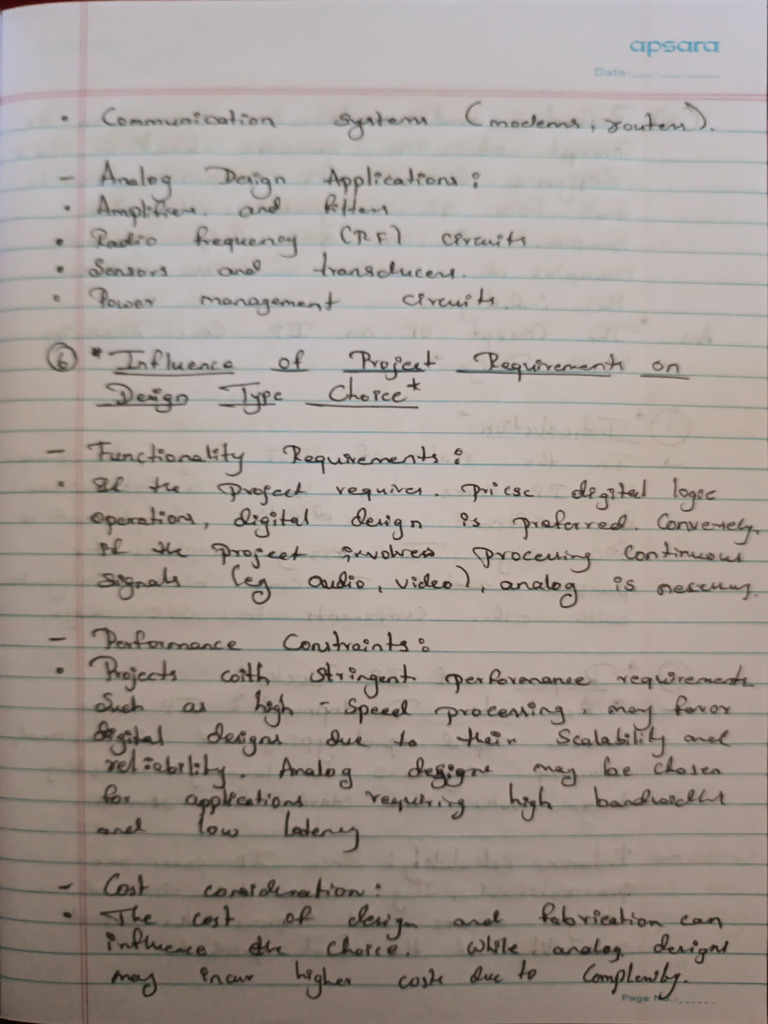 apsara
Date
• Communication systems (modems, routers).
– Analog Design Applications:
• Amplifiers and filters
• Radio frequency (RF) circuits
• Sensors and transducers.
• Power management circuits.
⑥ * Influence of Project Requirements on
Design Type Choice*
– Functionality Requirements:
• If the project requires. pricse digital logic
operations, digital design is preferred. Conversely,
if the project involves processing continuous
signals (eg audio, video), analog is necessary.
– Performance Constraints:
• Projects with stringent performance requirements
such as high-speed processing, may favor
digital designs due to their scalability and
reliability. Analog designs may be chosen
for applications requiring high bandwidth
and low latency
– Cost consideration:
• The cost of design and fabrication can
influence the choice. While analog designs
may incur higher costs due to complexity.
Page No.